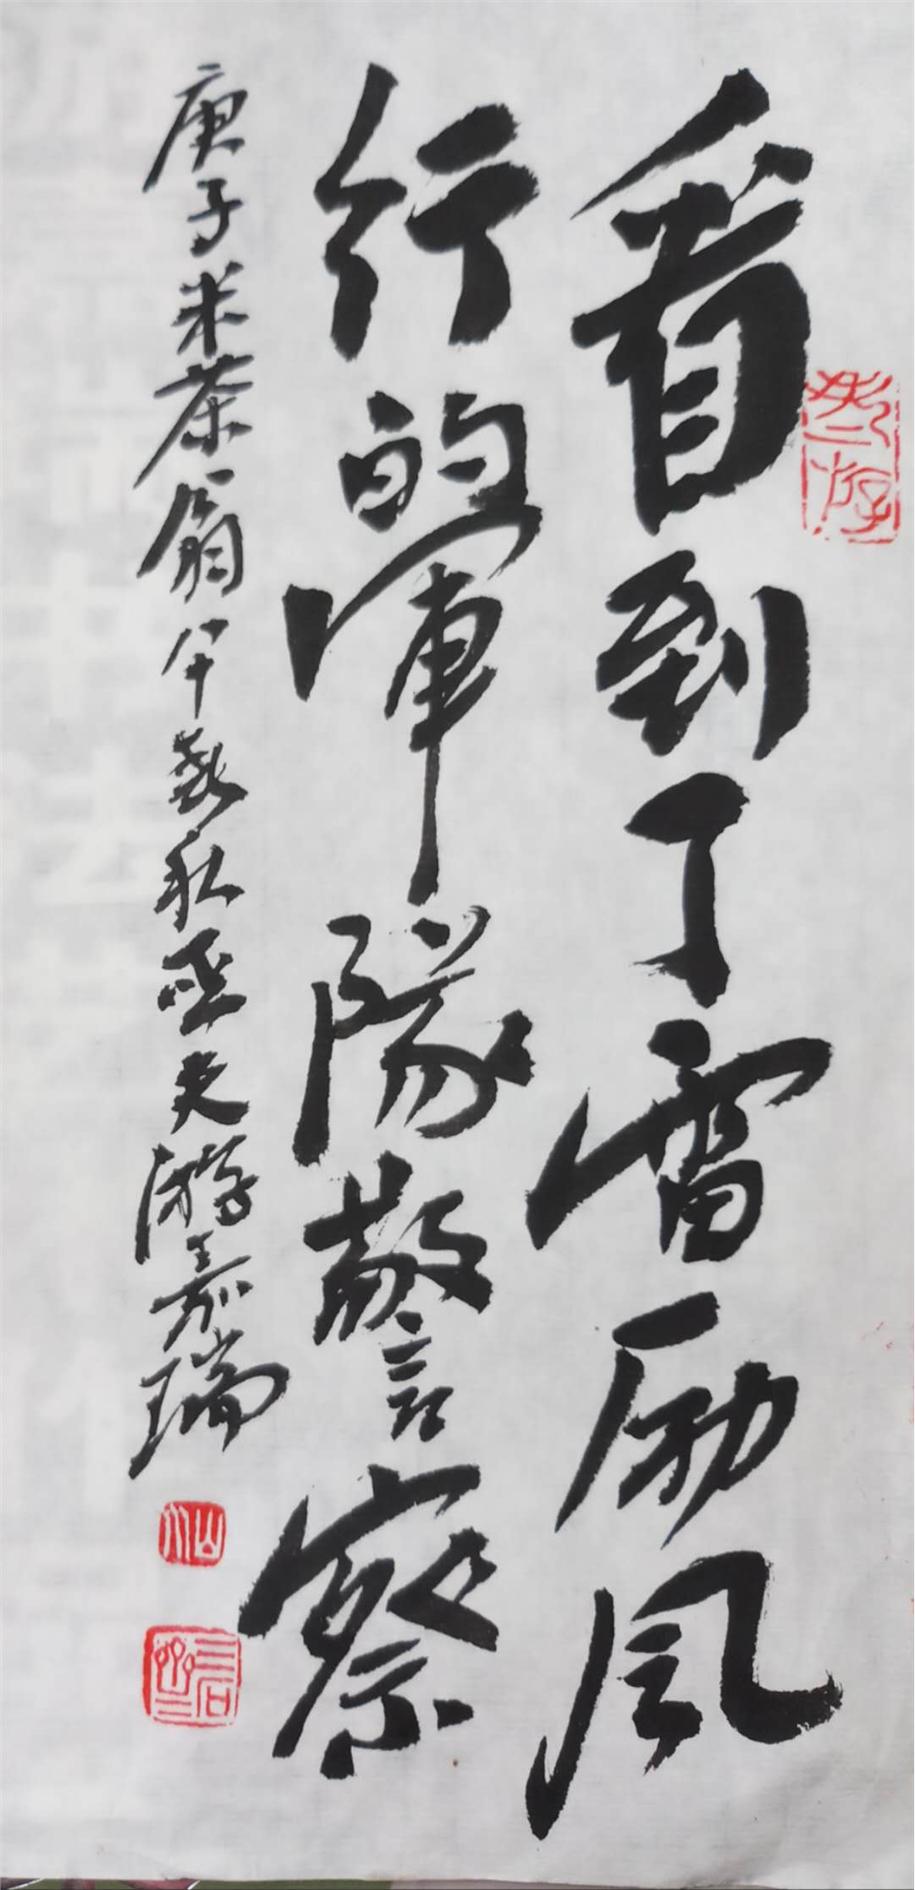 看到了雷厉风
行的军队警察
庚子米茶翁年義私丞夫游嘉瑞